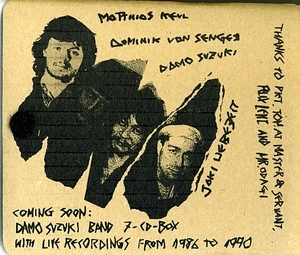 MATTHIAS KEUL
DOMINIK VON SENGER
DAMO SUZUKI
JAKI LIEBEZEIT
THANKS TO PAT, JON AT MASTER & SERVANT,
AND
COMING SOON:
DAMO SUZUKI BAND 7-CD-BOX
WITH LIVE RECORDINGS FROM 1986 TO 1990